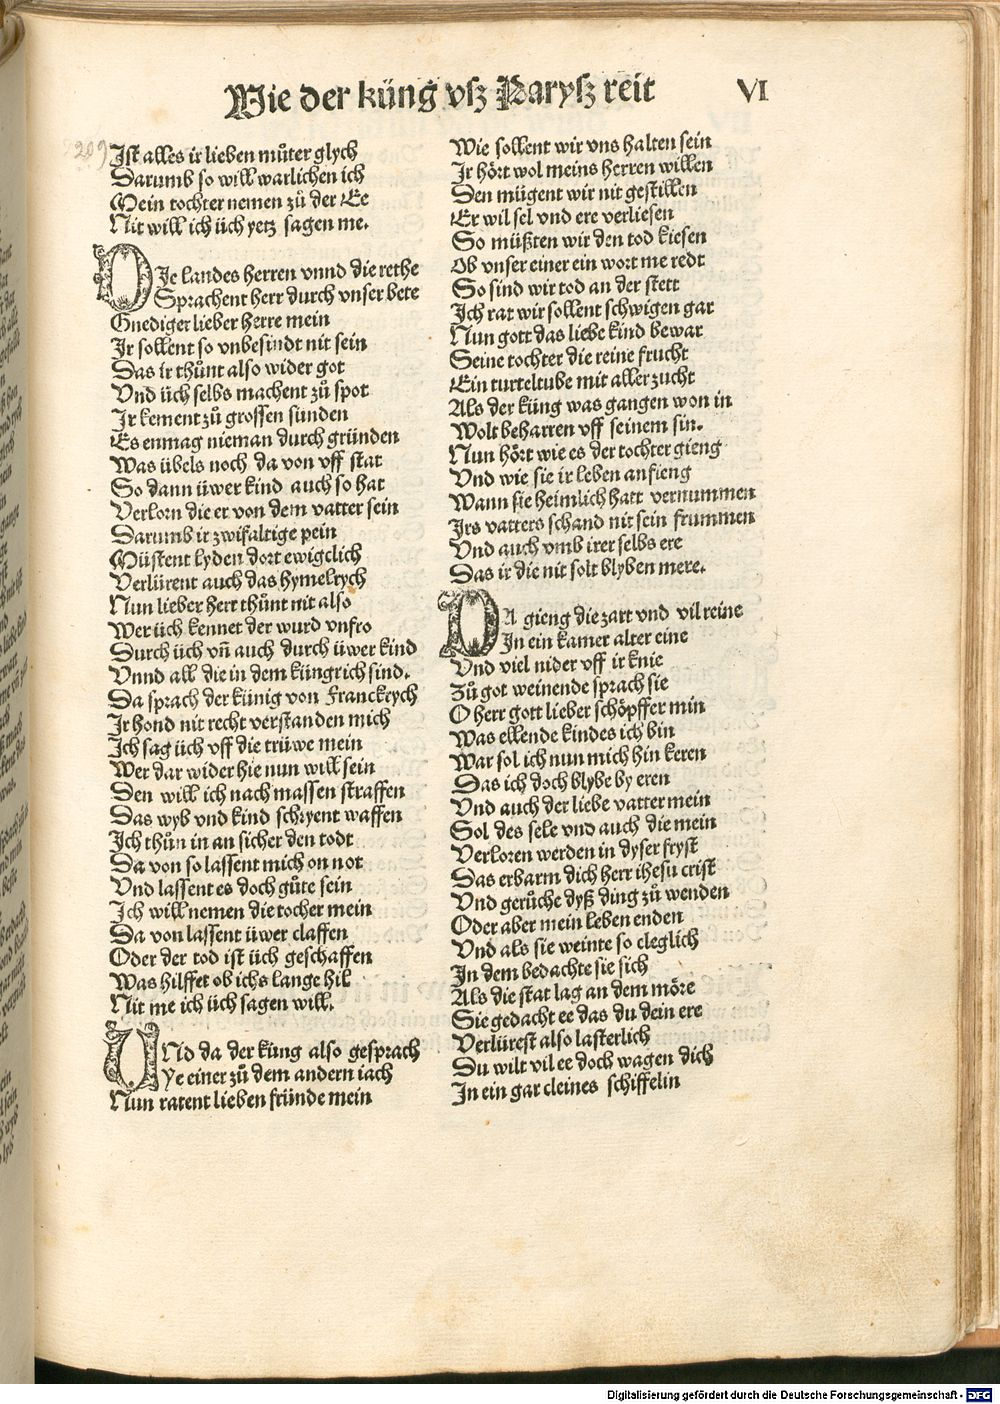 Wie der küng vsz Parysz reit VI
Ist alles ir lieben můter glych
Darumb so will warlichen ich
Mein tochter nemen zů der Ee
Nit will ich üch yetz sagen me.
DIe landes herren vnnd die rethe
Sprachent herr durch vnser bete
Gnediger lieber herre mein
Ir sollent so vnbesindt nit sein
Das ir thůnt also wider got
Vnd üch selbs machent zů spot
Ir kement zů grossen sunden
Es enmag nieman durch gründen
Was übels noch da von vff stat
So dann üwer kind auch so hat
Verlorn die er von dem vatter sein
Darumb ir zwifaltige pein
Müstent lyden dort ewigclich
Verlürent auch das hymelrych
Nun lieber herr thůnt nit also
Wer üch kennet der wurd vnfro
Durch üch vn̄ auch durch üwer kind
Vnnd all die in dem küngrich sind.
Da sprach der künig von Franckrych
Ir hond nit recht verstanden mich
Ich sag üch vff die trüwe mein
Wer dar wider hie nun will sein
Den will ich nach massen straffen
Das wyb vnd kind schryent waffen
Ich thůn in an sicher den todt
Da von so lassent mich on not
Vnd lassent es doch gůte sein
Ich will nemen die tocher mein
Da von lassent üwer claffen
Oder der tod ist üch geschaffen
Was hilffet ob ichs lange hil
Nit me ich üch sagen will.
VNd da der küng also gesprach
Ye einer zů dem andern iach
Nun ratent lieben fründe mein
Wie sollent wir vns halten sein
Ir hört wol meins herren willen
Den mügent wir nit gestillen
Er wil sel vnd ere verliesen
So müßten wir den tod kiesen
Ob vnser einer ein wort me redt
So sind wir tod an der stett
Ich rat wir sollent schwigen gar
Nun gott das liebe kind bewar
Seine tochter die reine frucht
Ein turteltube mit aller zucht
Als der küng was gangen won in
Wolt beharren vff seinem sin.
Nun hört wie es der tochter gieng
Vnd wie sie ir leben anfieng
Wann sie heimlich hatt vernummen
Irs vatters schand nit sein frummen
Vnd auch vmb irer selbs ere
Das ir die nit solt blyben mere.
DA gieng die zart vnd vil reine
In ein kamer alter eine
Vnd viel nider vff ir knie
Zů got weinende sprach sie
O herr gott lieber schöpffer min
Was ellende kindes ich bin
War sol ich nun mich hin keren
Das ich doch blybe by eren
Vnd auch der liebe vatter mein
Sol des sele vnd auch die mein
Verloren werden in dyser fryst
Das erbarm dich herr ihesu crist
Vnd gerůche dyß ding zů wenden
Oder aber mein leben enden
Vnd als sie weinte so cleglich
In dem bedachte sie sich
Als die stat lag an dem möre
Sie gedacht ee das du dein ere
Verlürest also lasterlich
Du wilt vil ee doch wagen dich
In ein gar cleines schiffelin
Digitalisierung gefördert durch die Deutsche Forschungsgemeinschaft - DFG